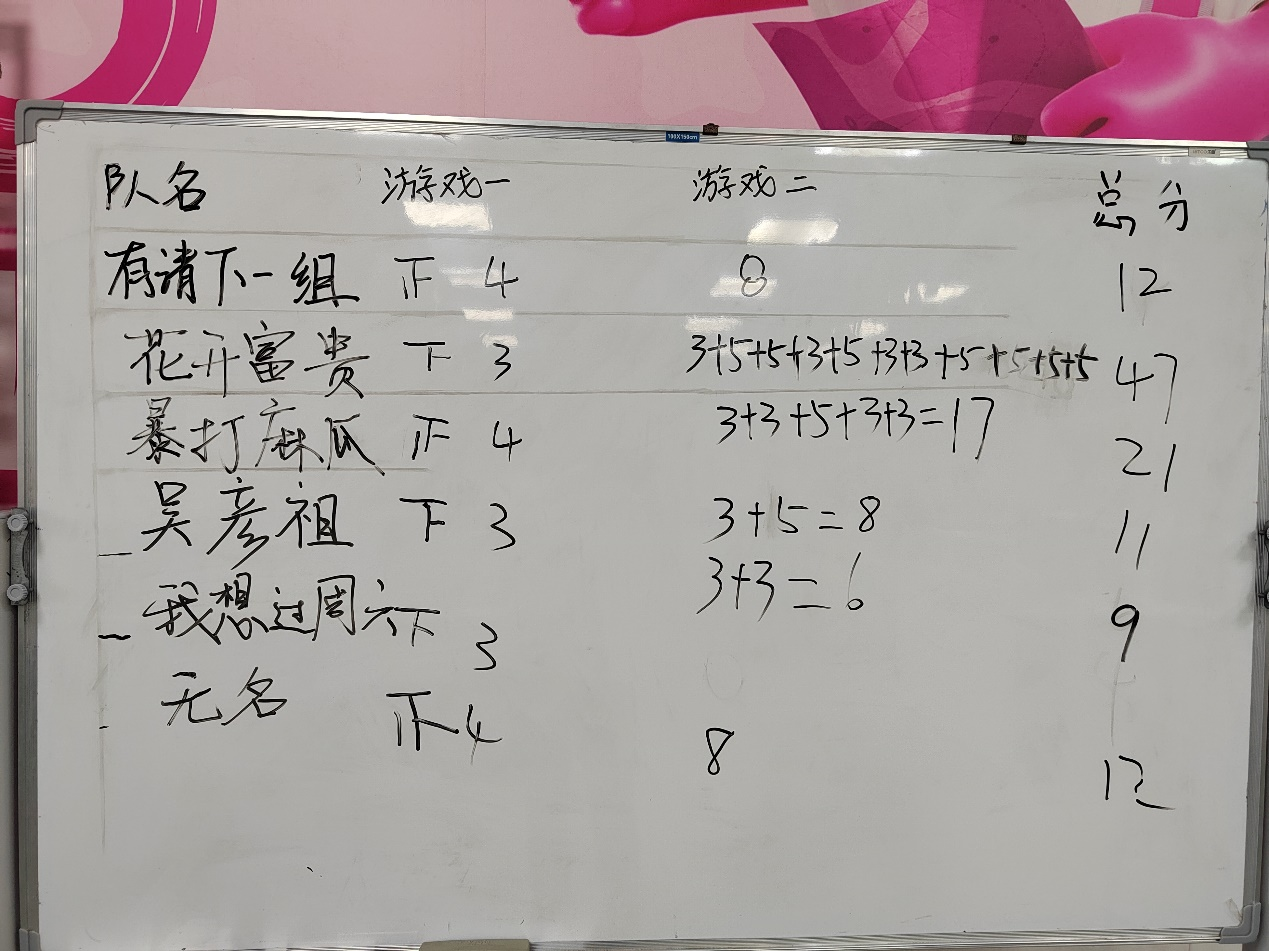 100X150cm
队名 游戏一 游戏二 总分
有请下一组 正 4 8 12
花开富贵 下 3 3+5+5+3+5+3+3+5+5+5+5 47
暴打麻瓜 正 4 3+3+5+3+3=17 21
吴彦祖 下 3 3+5=8 11
我想过周六 下 3 3+3=6 9
无名 正 4 8 12